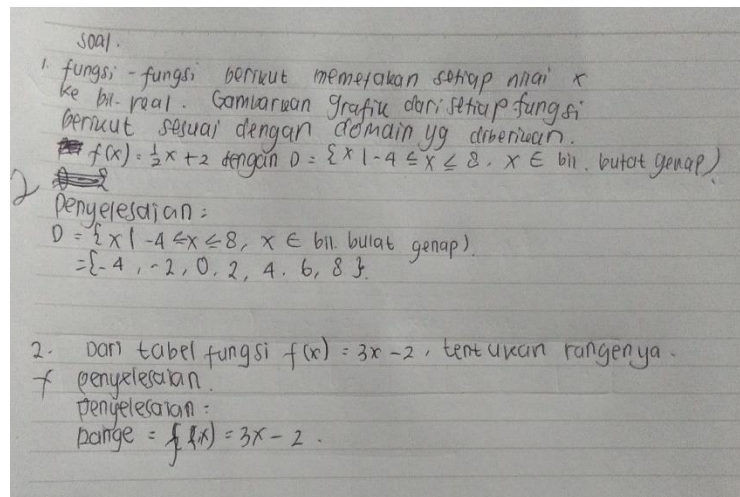 soal.
1. fungsi-fungsi berikut memetakan setiap nilai x
ke bil. real. Gambarkan grafik dari setiap fungsi
berikut sesuai dengan domain yg diberikan.
f(x) = ½x + 2 dengan D = {x | -4 ≤ x ≤ 8, x ∈ bil. bulat genap)
2
Penyelesaian :
D = {x | -4 ≤ x ≤ 8, x ∈ bil. bulat genap)
= {-4, -2, 0, 2, 4. 6, 8}.
2. Dari tabel fungsi f(x) = 3x - 2, tentukan rangenya.
penyelesaian.
penyelesaian :
Range = f(x) = 3x - 2.